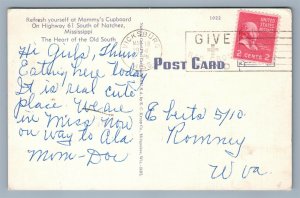 Refresh yourself at Mammy's Cupboard
On Highway 61 South of Natchez,
Mississippi
The Heart of the Old South
1022
GIVE
UNITED STATES
2 CENTS 2
POST CARD
Hi Girls, Thurs
Eating here Today
It is real cute
place. We are
in Miss now
on way to Ala
Mom-Doc
E 5/10
Romney
W va.